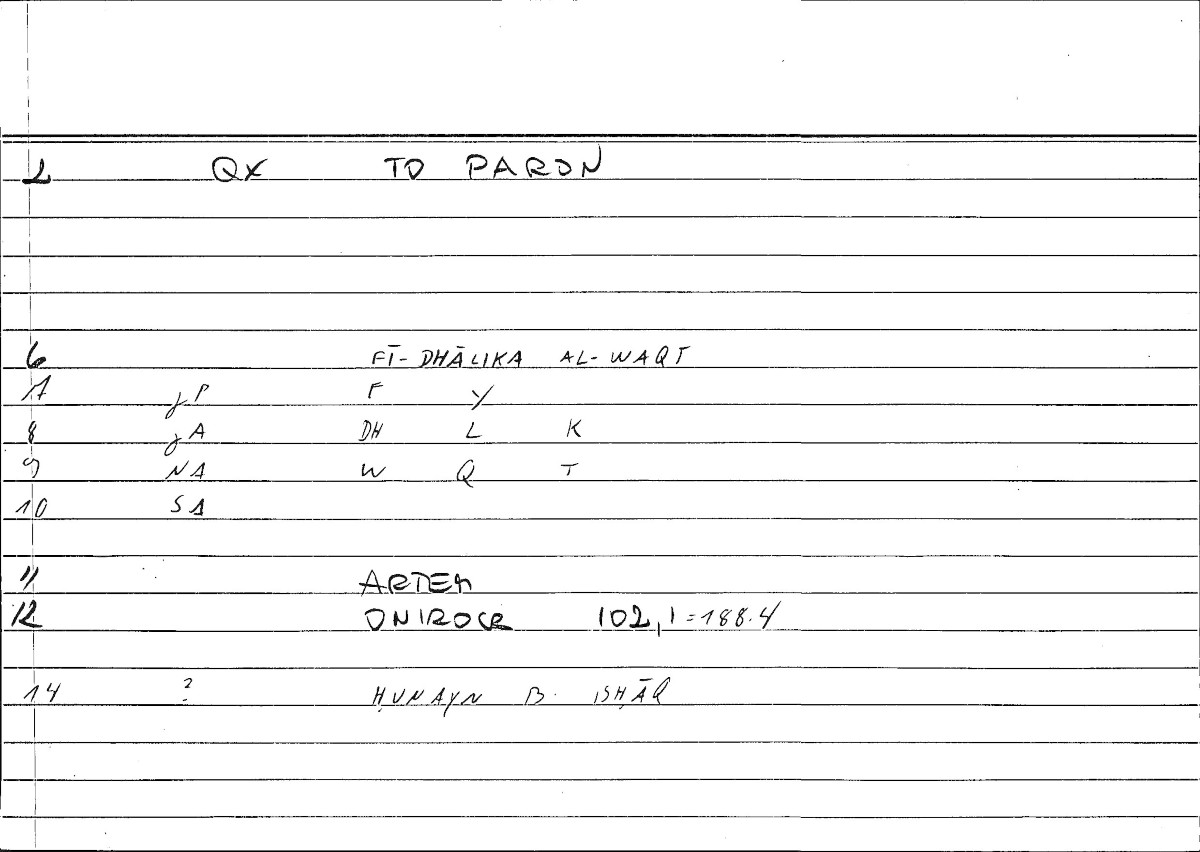 2 QX TO PARON
6 FĪ-DHĀLIKA AL-WAQT
7 JP F Y
8 JA DH L K
9 NA W Q T
10 SA
11 ARTEM
12 ONIROCR 102,1=188.4
14 ? ḤUNAYN B. ISḤĀQ